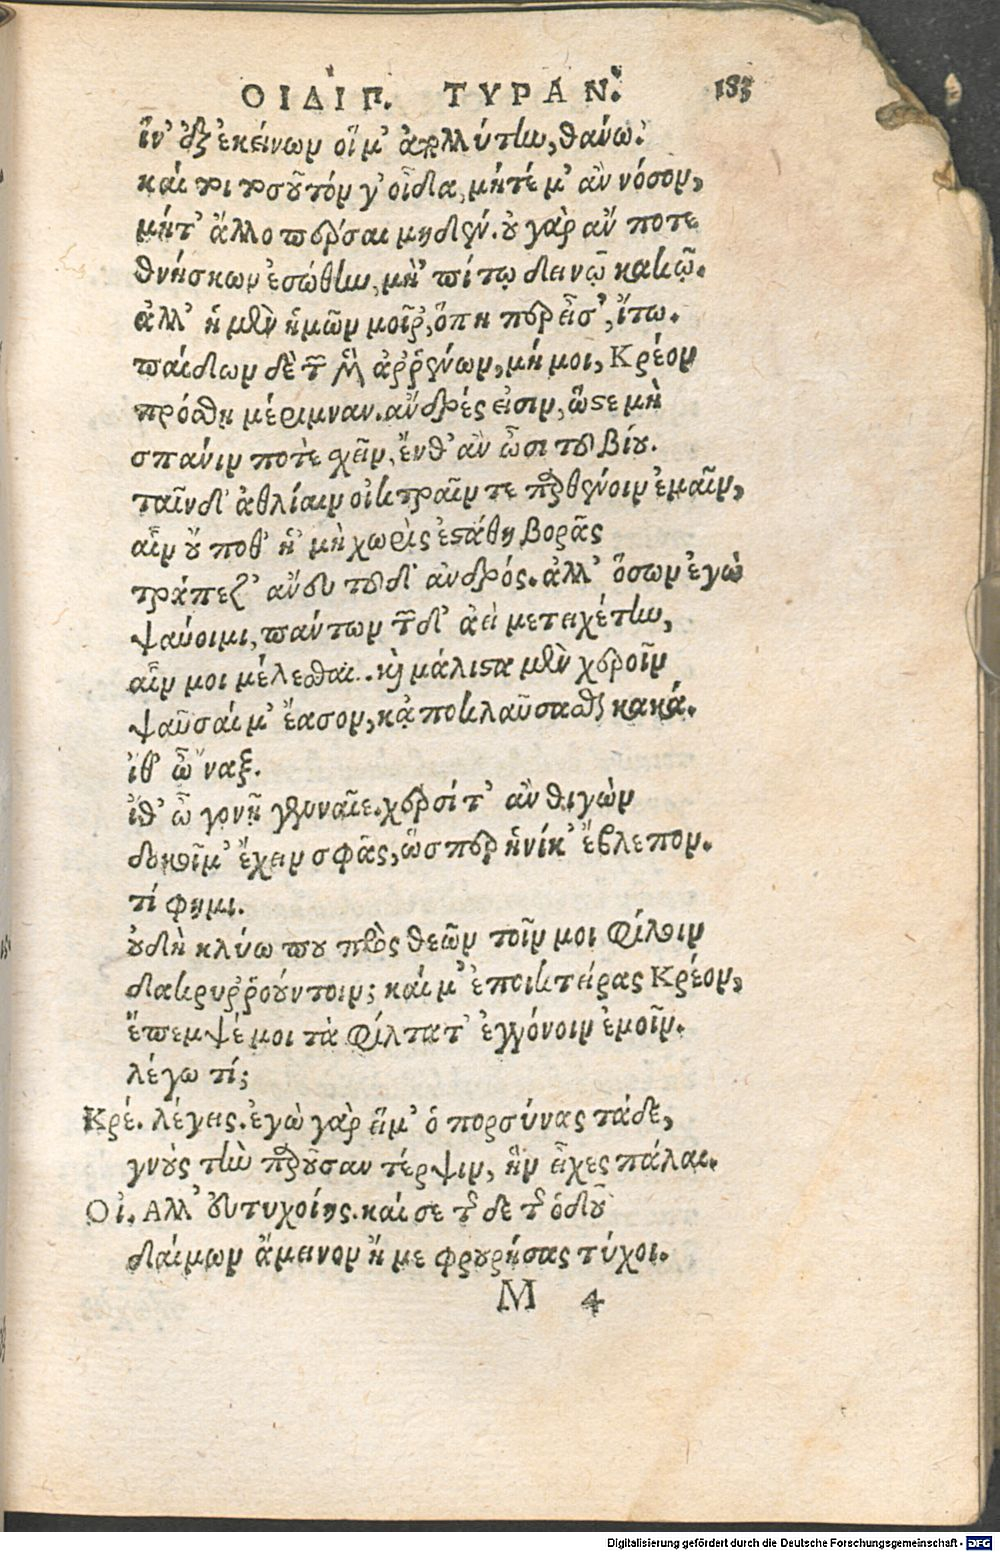 ΟΙΔΙΠ. ΤΥΡΑΝ. 183
ἵν' ἐξ ἐκείνων οἵ μ' ἀπωλλύτην, θάνω.
καί τοι τοσοῦτόν γ' οἶδα, μήτέ μ' ἂν νόσον,
μήτ' ἄλλο πέρσαι μηδέν. οὐ γὰρ ἄν ποτε
θνήσκων ἐσώθην, μὴ 'πί τῳ δεινῷ κακῷ.
ἀλλ' ἡ μὲν ἡμῶν μοῖρ', ὅπη περ εἶσ', ἴτω.
παίδων δὲ τῶν μὲν ἀῤῥένων, μή μοι, Κρέον
πρόσθη μέριμναν. ἄνδρές εἰσιν, ὥστε μὴ
σπάνιν ποτὲ χεῖν, ἔνθ' ἂν ὦσι τοῦ βίου.
ταῖν δ' ἀθλίαιν οἰκτραῖν τε παρθένοιν ἐμαῖν,
αἷν οὔ ποθ' ἡ 'μὴ χωρὶς ἐστάθη βορᾶς
τράπεζ' ἄνευ τοῦ δ' ἀνδρός. ἀλλ' ὅσων ἐγὼ
ψαύοιμι, πάντων τῶν δ' ἀεὶ μετειχέτην,
αἷν μοι μέλεσθαι. καὶ μάλιστα μὲν χεροῖν
ψαῦσαί μ' ἔασον, κἀποκλαύσασθαι κακά.
ἴθ' ὦ 'ναξ.
ἴθ' ὦ γονῇ γενναῖε. χερσί τ' ἂν θιγὼν
δοκοῖμ' ἔχειν σφᾶς, ὥσπερ ἡνίκ' ἔβλεπον.
τί φημι.
οὐδὴ κλύω που πρὸς θεῶν τοῖν μοι φίλοιν
δακρυῤῥούντοιν; καί μ' ἐποικτείρας Κρέον,
ἔπεμψέ μοι τὰ φίλτατ' ἐγγόνοιν ἐμοῖν.
λέγω τί;
Κρέ. λέγεις. ἐγὼ γὰρ εἴμ' ὁ πορσύνας τάδε,
γνοὺς τὴν παροῦσαν τέρψιν, ἣν εἶχες πάλαι.
Οἰ. Ἀλλ' εὐτυχοίης. καί σε τῆς δε τῆς ὁδοῦ
δαίμων ἄμεινον ἤ με φρουρήσας τύχοι.
M 4
Digitalisierung gefördert durch die Deutsche Forschungsgemeinschaft - DFG